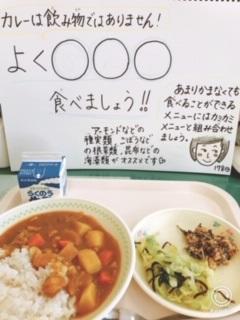 カレーは飲み物ではありません！
よく〇〇〇
食べましょう!!
アーモンドなどの
種実類、ごぼうなど
の根菜類、昆布などの
海藻類がオススメです
あまりかまなくても
食べることができる
メニューにはカミカミ
メニューと組み合わせ
ましょう。
らくのう